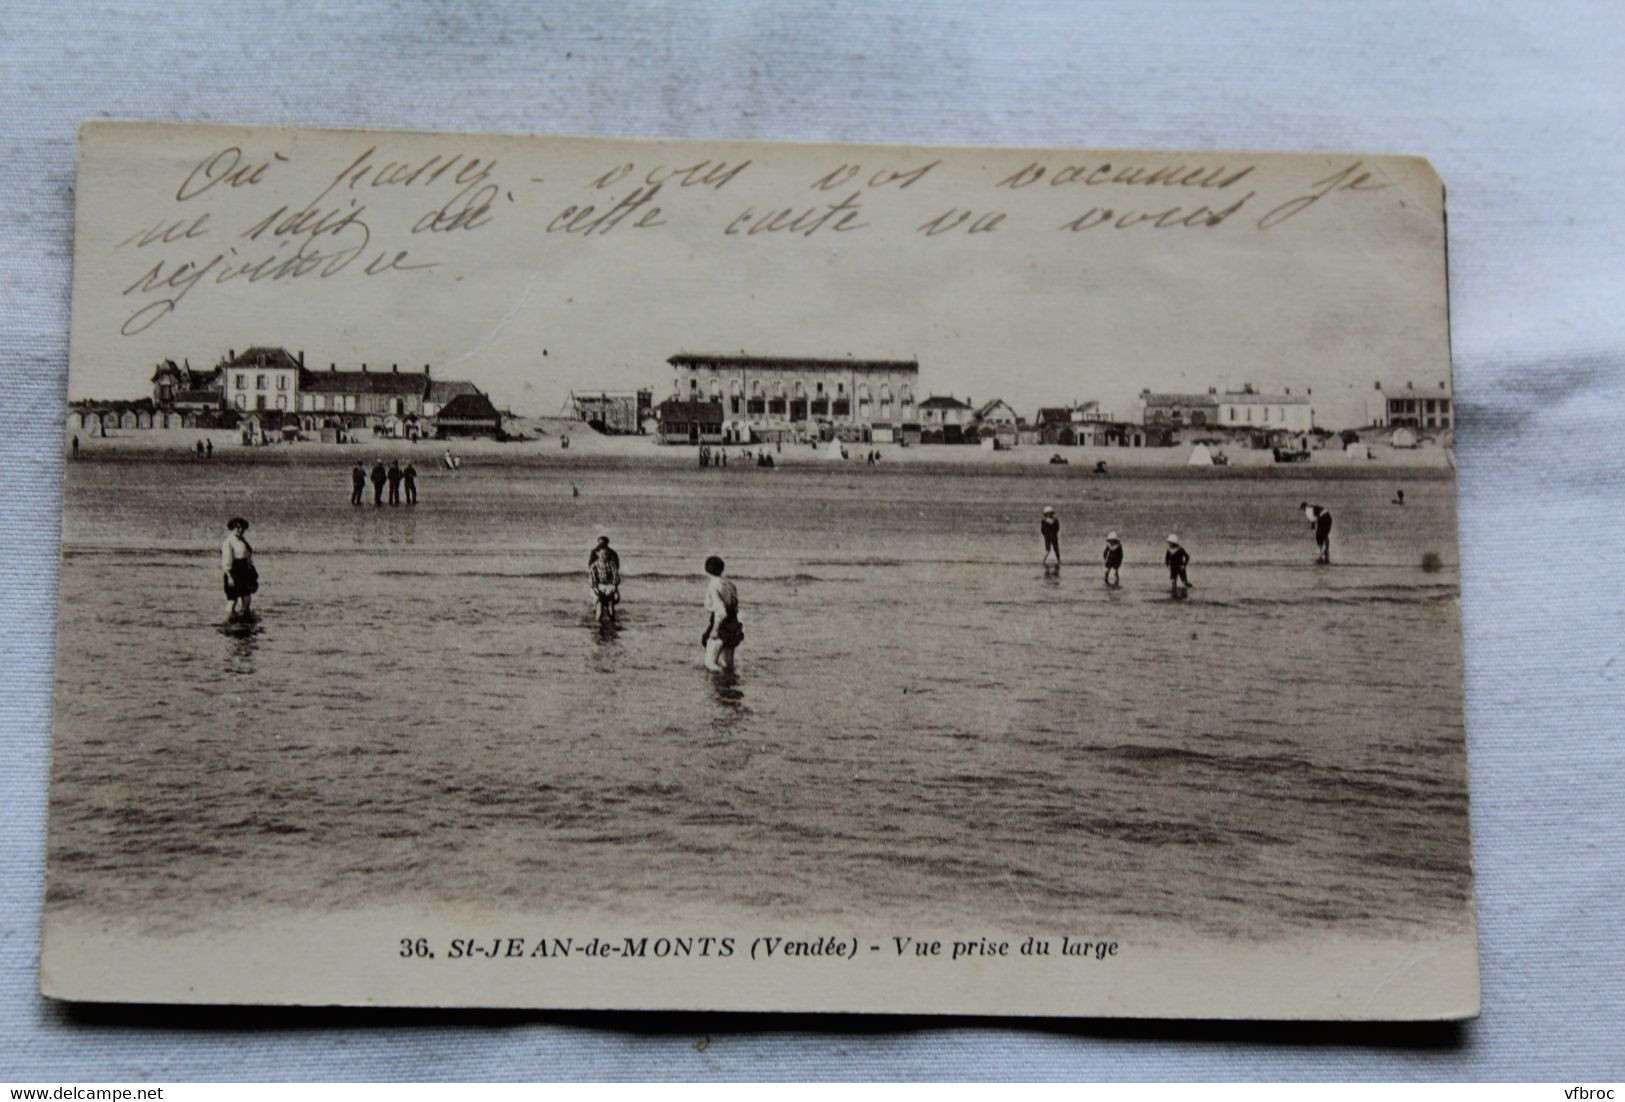 Où passez-vous vos vacances je
ne sais où cette carte va vous
rejoindre
36. St-JEAN-de-MONTS (Vendée) - Vue prise du large
www.delcampe.net
vfbroc